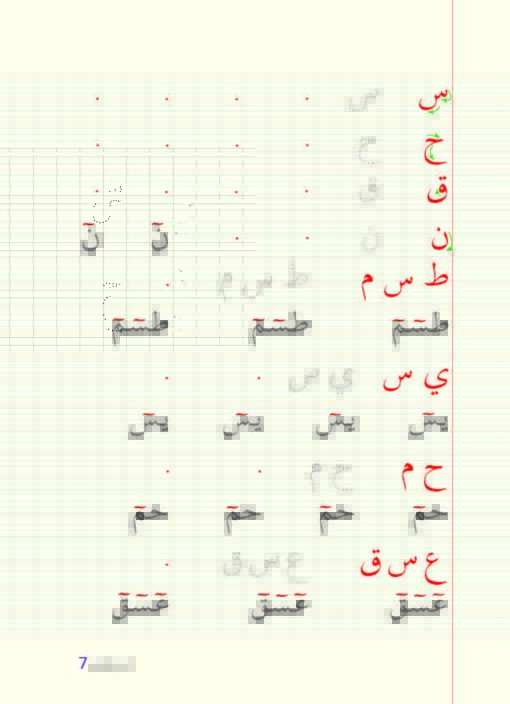 س س
ح ح
ق ق
ن ن نٓ نٓ
ط س م ط س م
طسٓمٓ طسٓمٓ طسٓمٓ
ي س ي س
يسٓ يسٓ يسٓ يسٓ
ح م ح م
حمٓ حمٓ حمٓ حمٓ
ع س ق ع س ق
عٓسٓقٓ عٓسٓقٓ عٓسٓقٓ
7